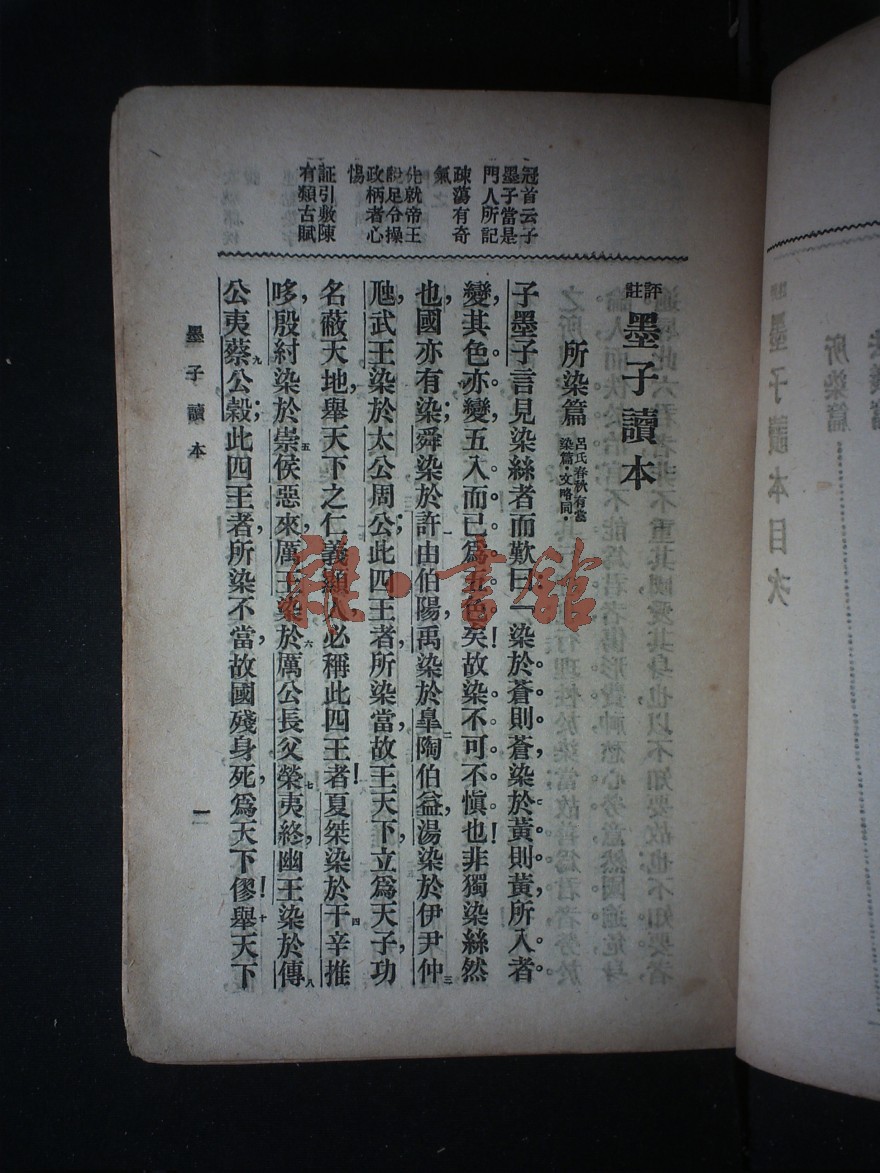 冠首云子
墨子當是
門人所記
疎蕩有奇
氣
先就帝王
說足令操
政柄者心
惕
証引敷陳
有類古賦
評註
墨子讀本
所染篇
呂氏春秋有當
染篇·文略同·
子墨子言見染絲者而歎曰：「染於蒼則蒼染於黃則黃所入者
變其色亦變五入而已爲五色矣！故染不可不愼也！非獨染絲然
也國亦有染；舜染於許由伯陽，禹染於皐陶伯益，湯染於伊尹仲
虺，武王染於太公周公；此四王者所染當故王天下，立爲天子，功
名蔽天地，舉天下之仁義顯人必稱此四王者！夏桀染於干辛推
哆，殷紂染於崇侯惡來，厲王染於厲公長父榮夷終，幽王染於傅
公夷蔡公穀；此四王者，所染不當，故國殘身死，爲天下僇！舉天下
墨子讀本
一
墨子讀本目次
所染篇
雜·書館